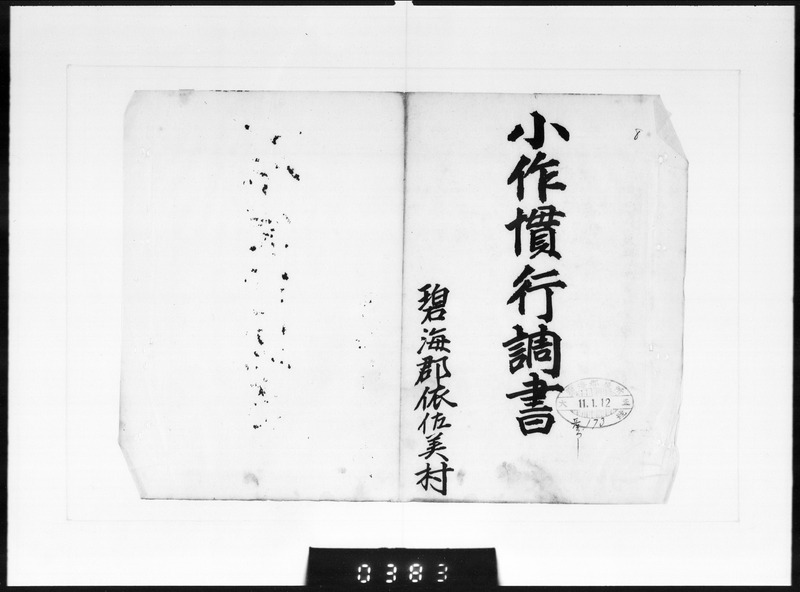 小作慣行調書
碧海郡依佐美村
8
11.1.12
170
0383